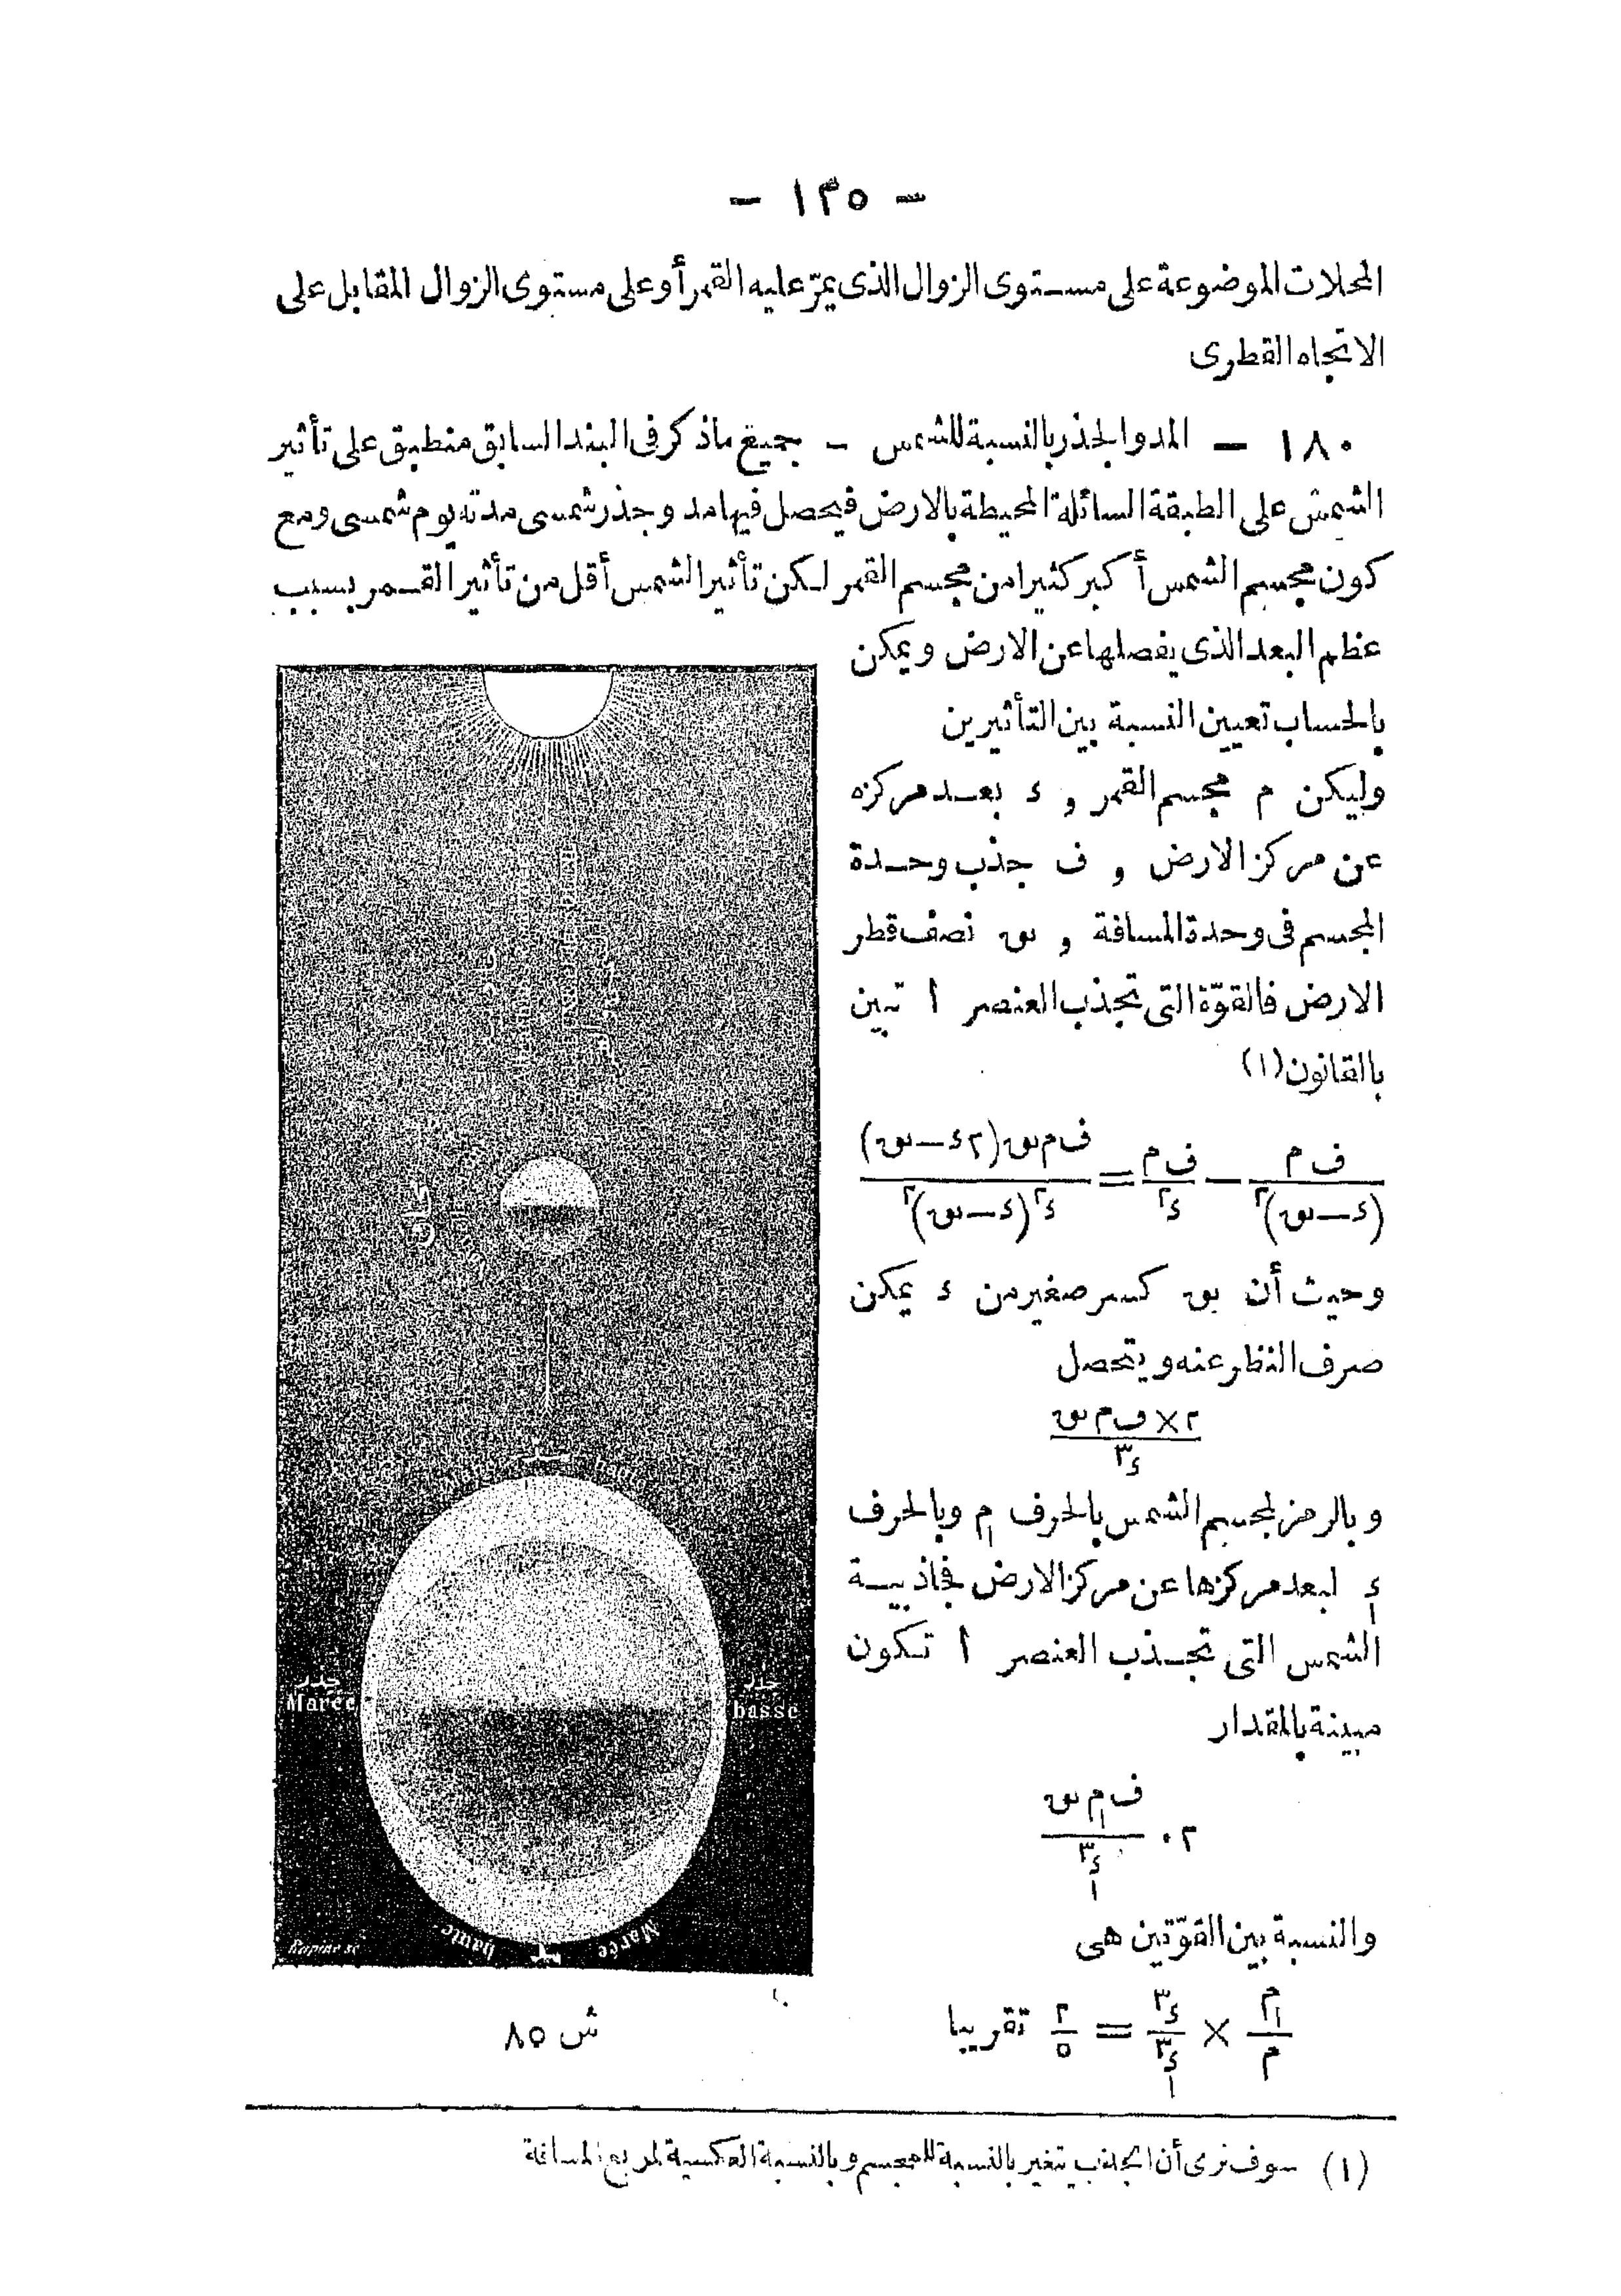 - ١٣٥ -
المحلات الموضوعة على مستوى الزوال الذى يمرّ عليه القمر أو على مستوى الزوال المقابل على
الاتجاه القطرى
١٨٠ - المد والجذر بالنسبة للشمس - جميع ماذكر فى البند السابق منطبق على تأثير
الشمس على الطبقة السائلة المحيطة بالارض فيحصل فيها مد وجذر شمسى مدته يوم شمسى ومع
كون مجسم الشمس أكبر كثيرا من مجسم القمر لكن تأثير الشمس أقل من تأثير القمر بسبب
عظم البعد الذى يفصلها عن الارض ويمكن
بالحساب تعيين النسبة بين التأثيرين
وليكن م مجسم القمر و ء بعد مركزه
عن مركز الارض و ف جذب وحدة
المجسم فى وحدة المسافة و نق نصف قطر
الارض فالقوّة التى تجذب العنصر أ تبين
بالقانون (١)
ف م / (ء – نق)٢ – ف م / ء٢ = ف م نق (٢ء – نق) / ء٢ (ء – نق)٢
وحيث أن نق كسر صغير من ء يمكن
صرف النظر عنه ويتحصل
٢ × ف م نق / ء٣
وبالرمز لمجسم الشمس بالحرف م١ وبالحرف
ء١ لبعد مركزها عن مركز الارض فجاذبية
الشمس التى تجذب العنصر أ تكون
مبينة بالمقدار
٢ · ف م١ نق / ء١٣
والنسبة بين القوّتين هى
م١ / م × ء٣ / ء١٣ = ٢ / ٥ تقريبا
haute
جذر
Marée
جذر
basse
Marée
haute
Rapine sc
ش ٨٥
(١) سوف نرى أن الجذب يتغير بالنسبة للمجسم وبالنسبة العكسية لمربع المسافة